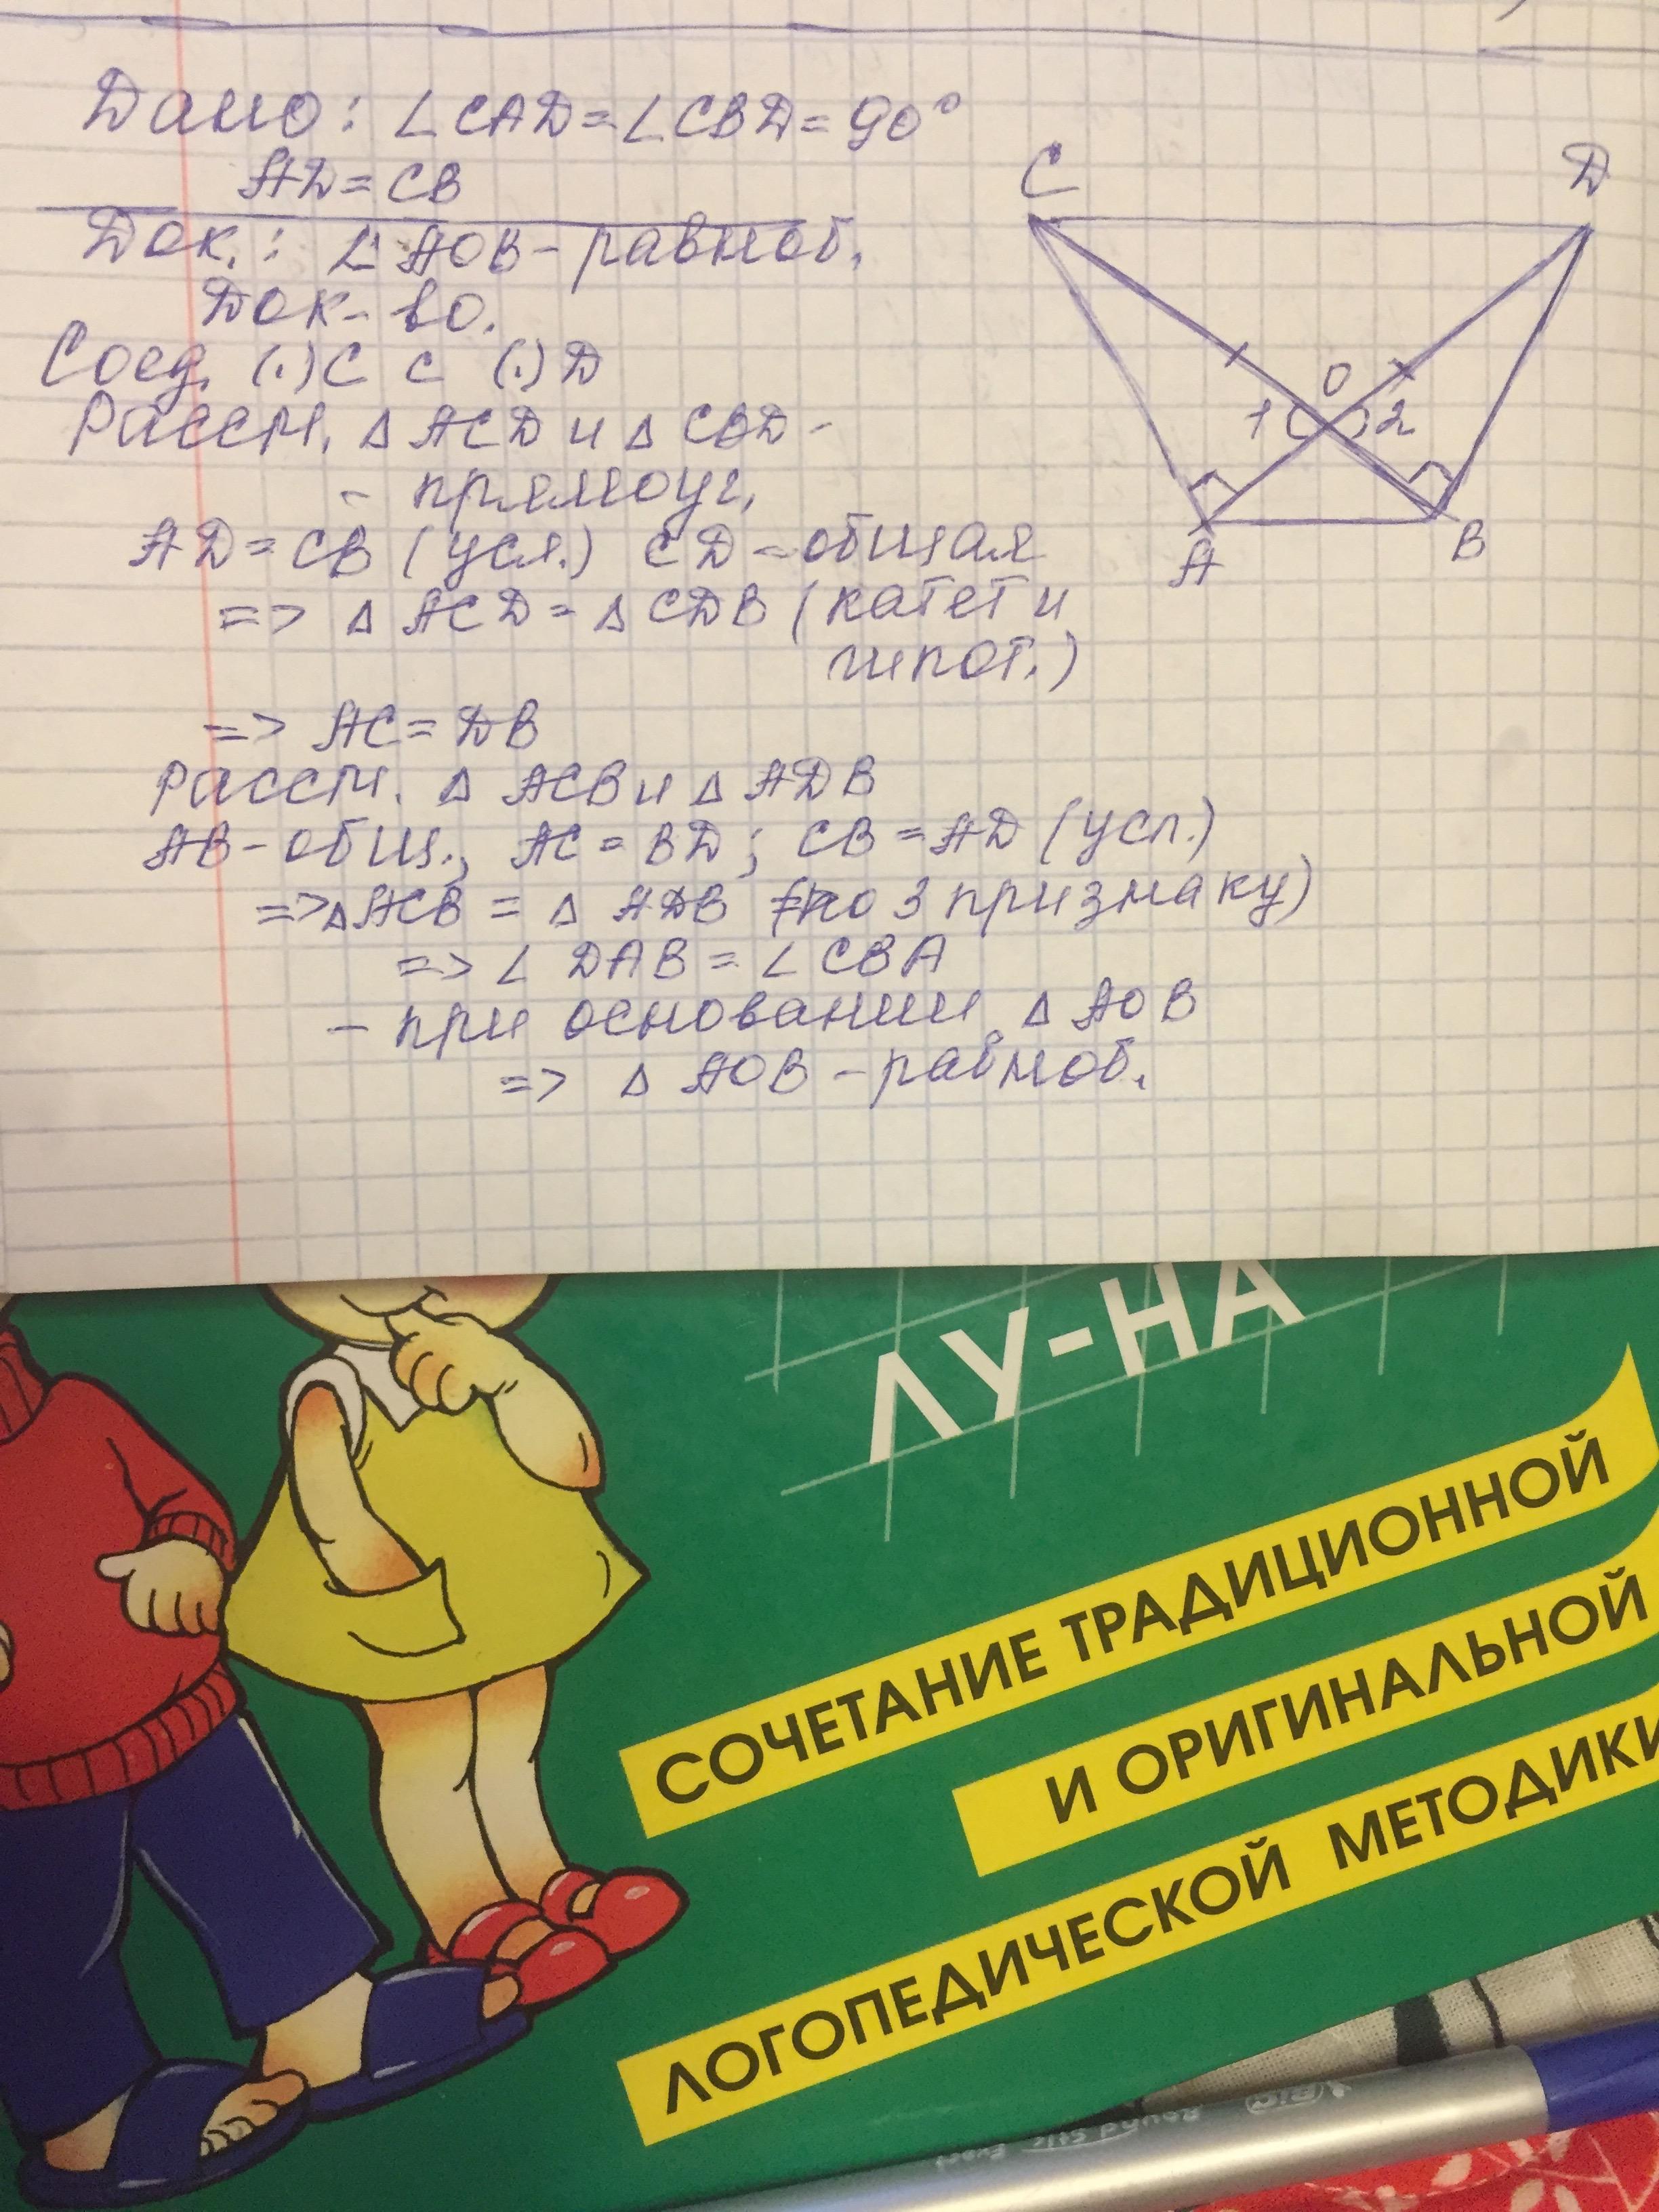 Дано: ∠CAD=∠CBD=90°
AD=CB
Док.: ∠ AOB-равноб.
Док-во.
Соед. (.)C с (.)D
Рассм. △ ACD и △ CBD-
- прямоуг.
AD=CB (усл.) CD-общая
=> △ ACD=△ CDB (катет и
гипот.)
=> AC=DB
Рассм. △ ACB и △ ADB
AB-общ., AC=BD; CB=AD (усл.)
=>△ACB=△ ADB (по 3 признаку)
=> ∠ DAB=∠ CBA
- при основании △ AOB
=> △ AOB-равноб.
C
D
O
1
2
A
B
ЛУ-НА
СОЧЕТАНИЕ ТРАДИЦИОННОЙ
И ОРИГИНАЛЬНОЙ
ЛОГОПЕДИЧЕСКОЙ МЕТОДИКИ
BIC
Round Stic Exact